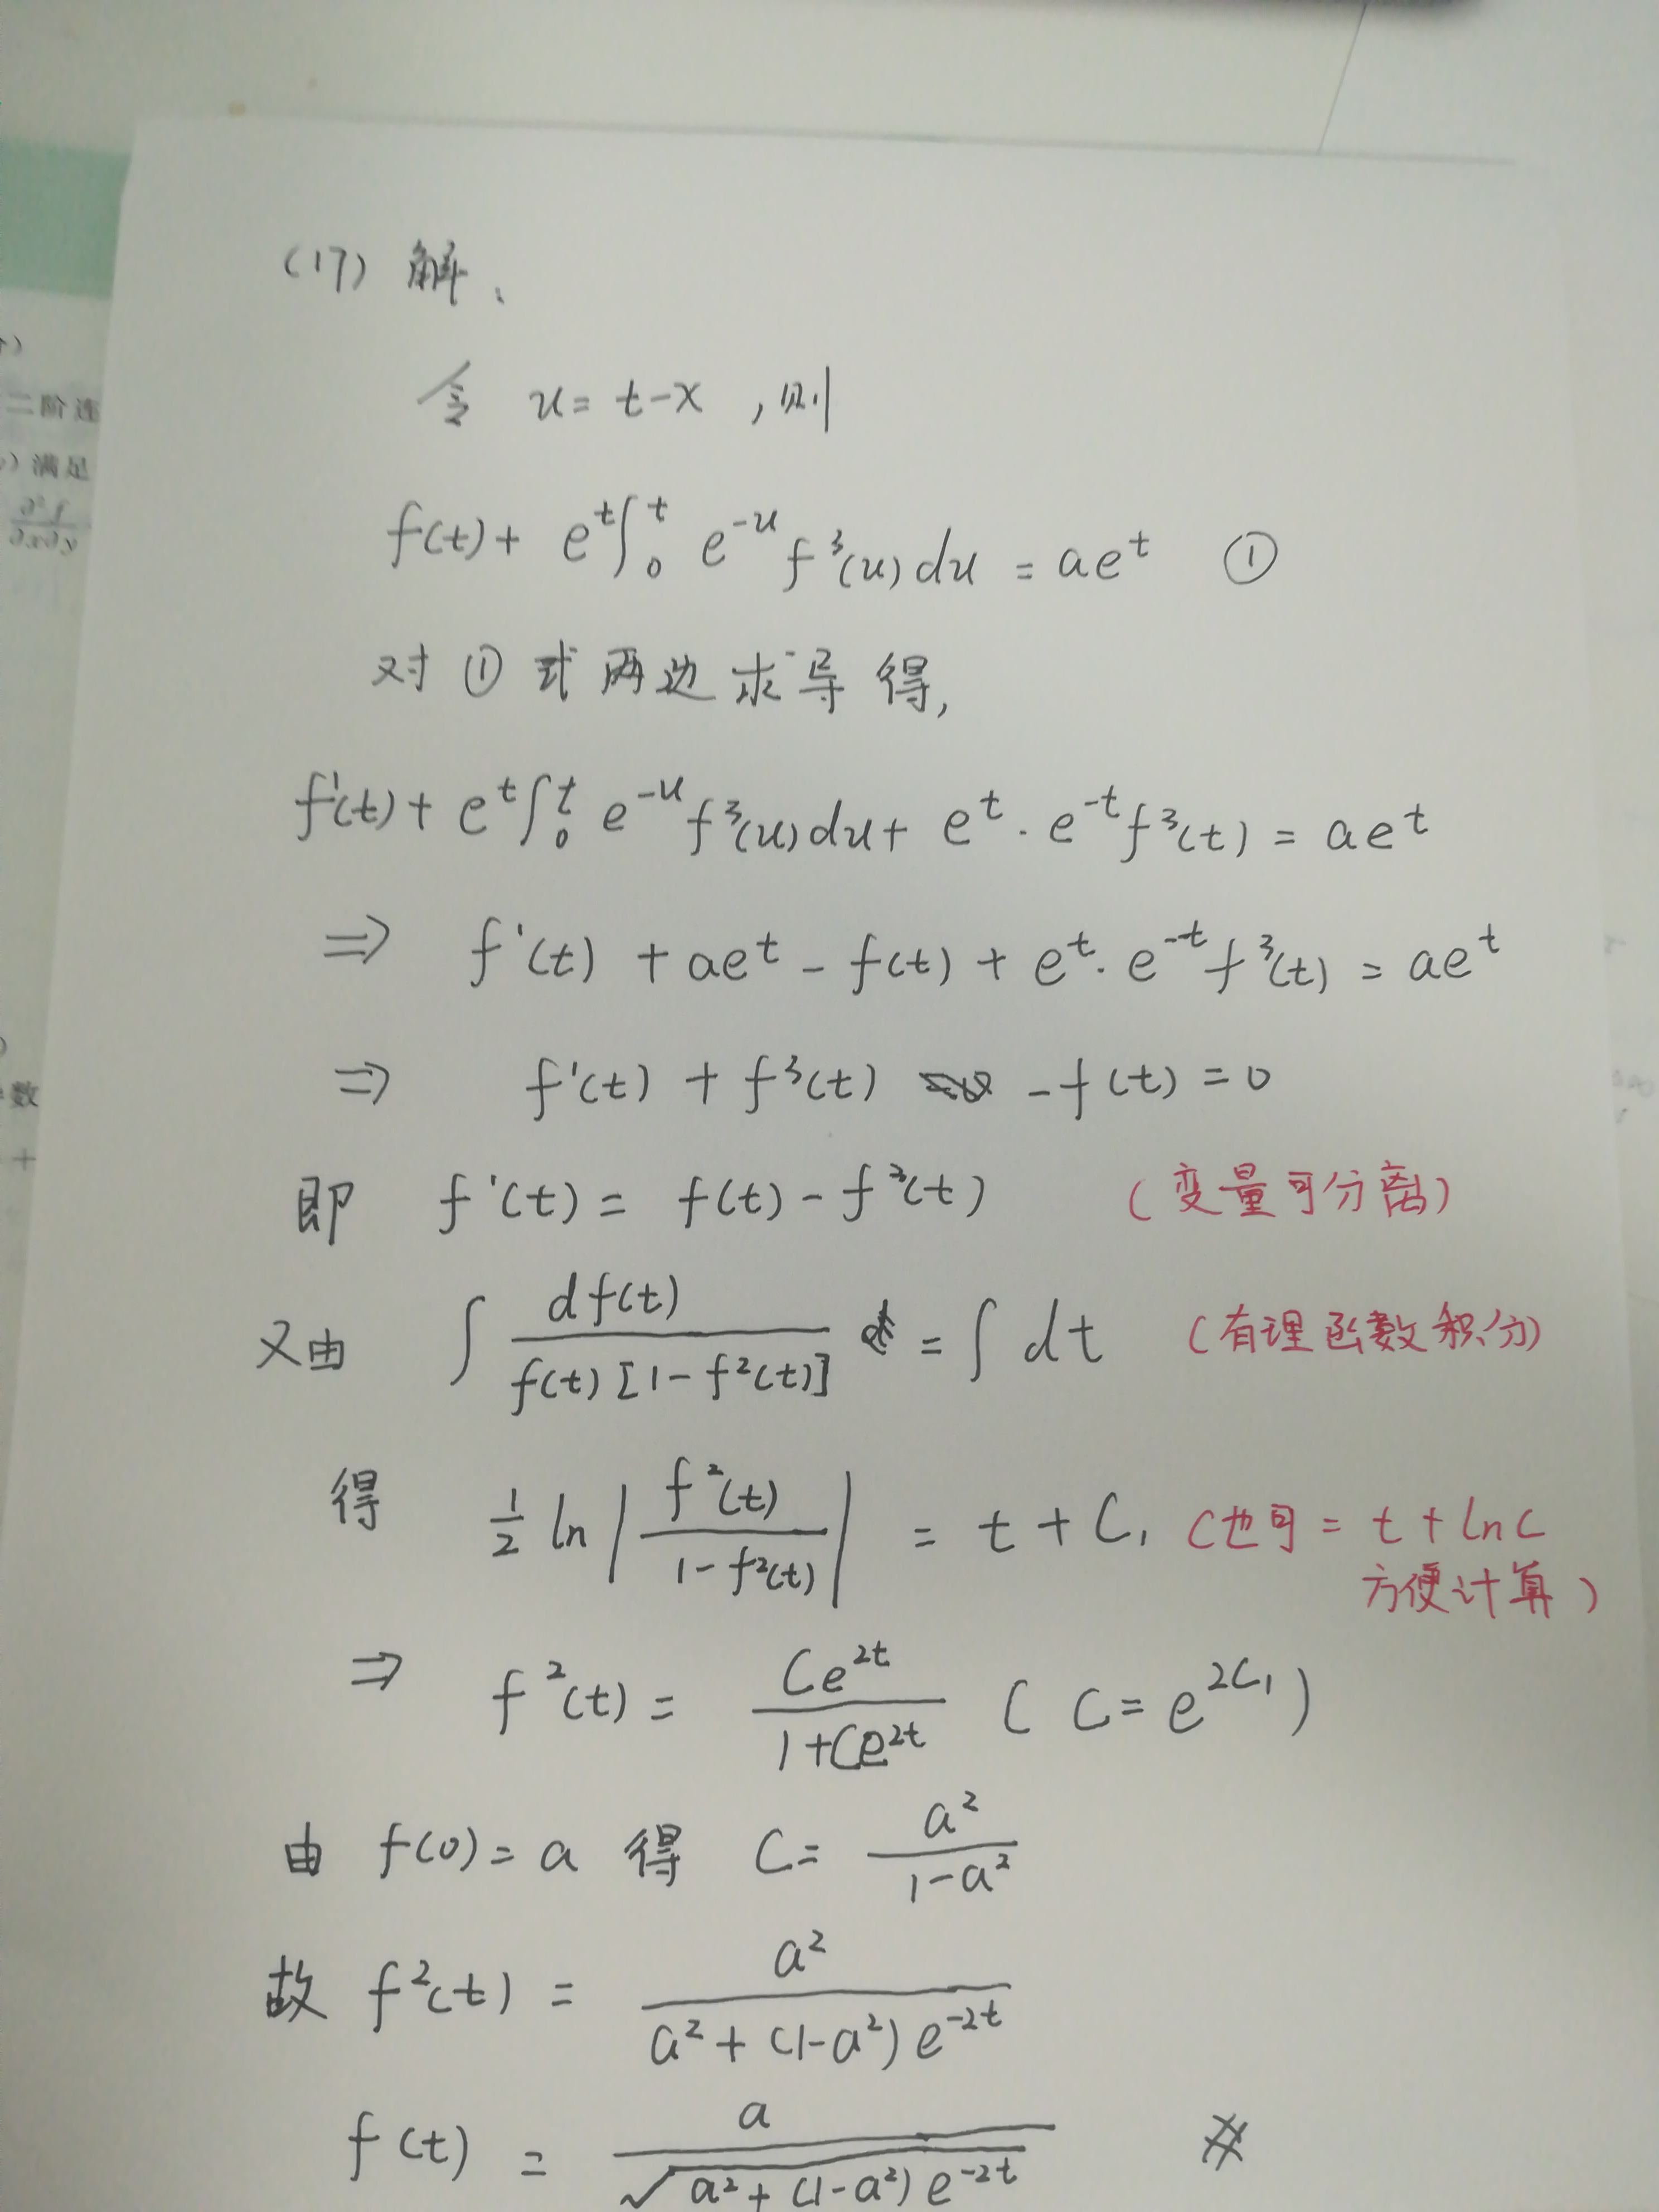 (17) 解、
令 u = t-x ,则
f(t) + e^t ∫_0^t e^{-u} f^3(u) du = ae^t ①
对 ① 式 两 边 求 导 得,
f'(t) + e^t ∫_0^t e^{-u} f^3(u) du + e^t · e^{-t} f^3(t) = ae^t
⇒ f'(t) + ae^t - f(t) + e^t · e^{-t} f^3(t) = ae^t
⇒ f'(t) + f^3(t) - f(t) = 0
即 f'(t) = f(t) - f^3(t) (变量可分离)
又由 ∫ \frac{df(t)}{f(t)[1-f^2(t)]} = ∫ dt (有理函数积分)
得 \frac{1}{2} ln | \frac{f^2(t)}{1-f^2(t)} | = t + C_1 (也可 = t + lnC
方便计算)
⇒ f^2(t) = \frac{Ce^{2t}}{1+Ce^{2t}} ( C = e^{2C_1} )
由 f(0) = a 得 C = \frac{a^2}{1-a^2}
故 f^2(t) = \frac{a^2}{a^2+(1-a^2)e^{-2t}}
f(t) = \frac{a}{\sqrt{a^2+(1-a^2)e^{-2t}}} #
二阶连
)满足
数
+